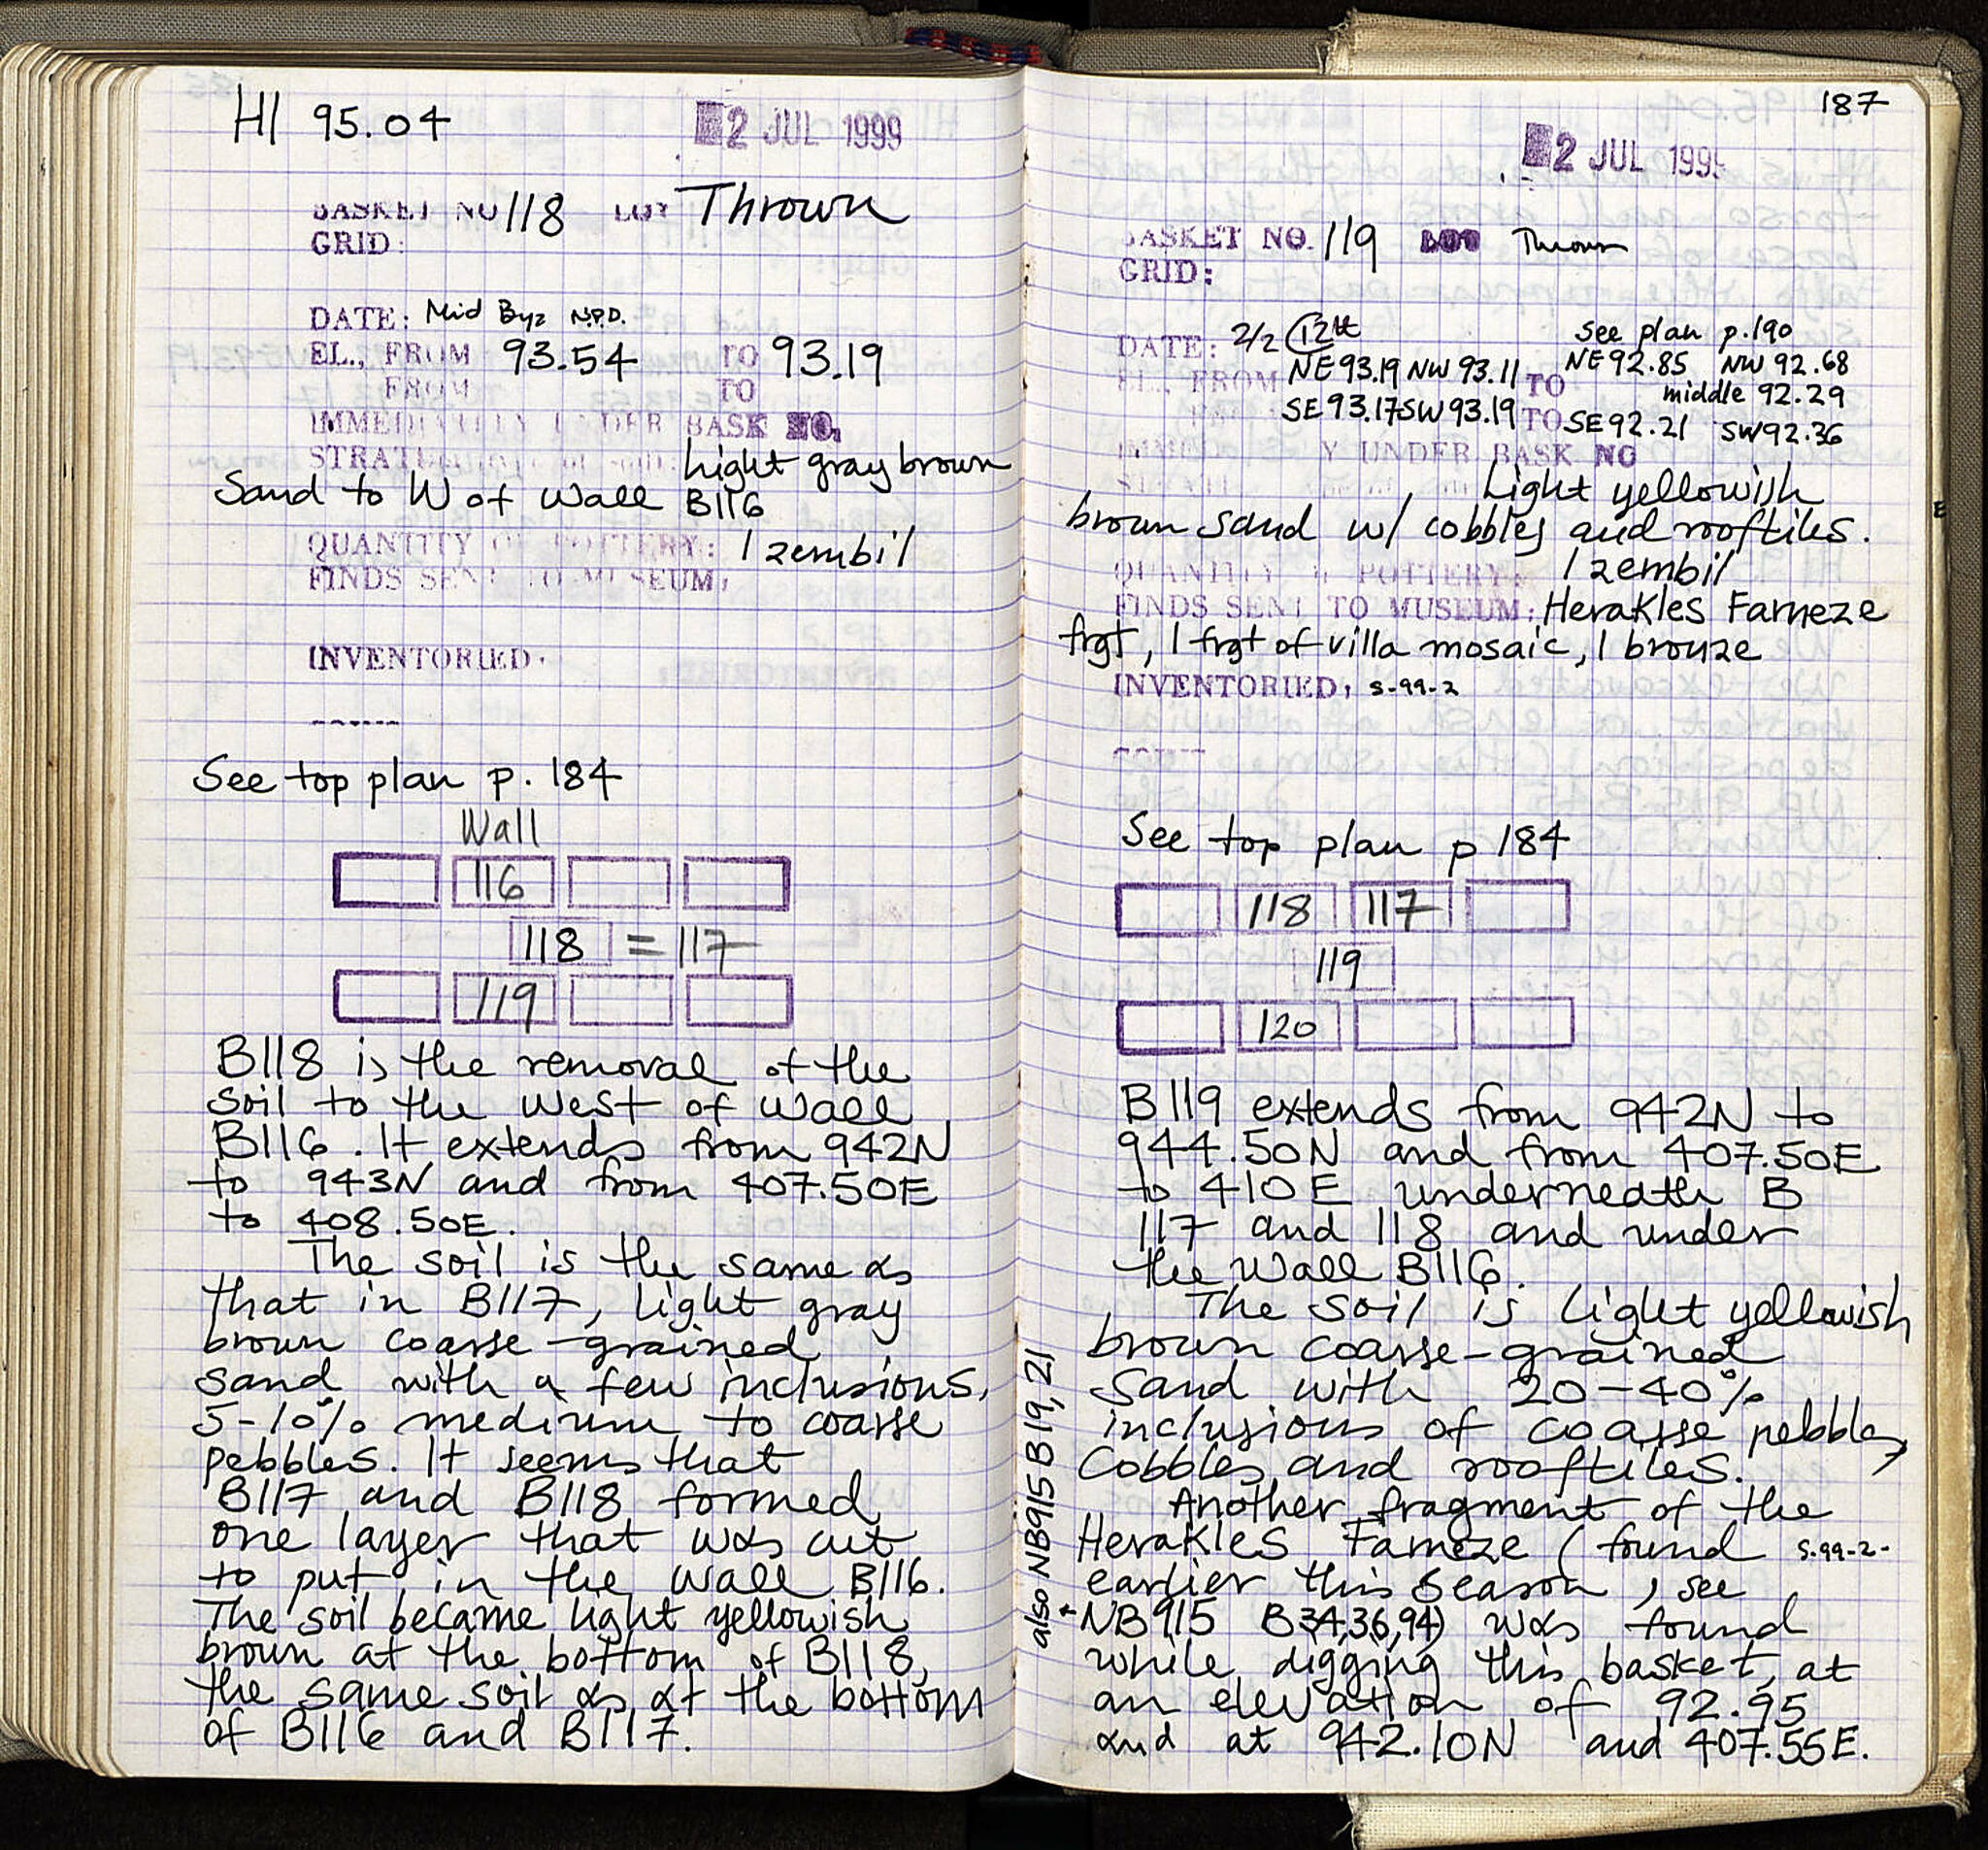 HI 95.04
2 JUL 1999
BASKET NO 118 LOT Thrown
GRID:
DATE: Mid Byz N.P.D.
EL., FROM 93.54 TO 93.19
FROM TO
IMMEDIATELY UNDER BASK NO.
Light gray brown
Sand to W of Wall B116
QUANTITY OF POTTERY: 1 zembil
FINDS SENT TO MUSEUM:
INVENTORIED:
See top plan p. 184
Wall
116
118 = 117
119
B118 is the removal of the
soil to the west of Wall
B116. It extends from 942N
to 943N and from 407.50E
to 408.50E.
The soil is the same as
that in B117, light gray
brown coarse-grained
sand with a few inclusions,
5-10% medium to coarse
pebbles. It seems that
B117 and B118 formed
one layer that was cut
to put in the Wall B116.
The soil became light yellowish
brown at the bottom of B118,
the same soil as at the bottom
of B116 and B117.
187
2 JUL 1999
BASKET NO. 119 LOT Thrown
GRID:
DATE: 2/2 12th
see plan p.190
EL., FROM NE 93.19 NW 93.11 TO NE 92.85 NW 92.68
middle 92.29
SE 93.17 SW 93.19 TO SE 92.21 SW 92.36
Y UNDER BASK NO
Light yellowish
brown sand w/ cobbles and rooftiles.
QUANTITY OF POTTERY: 1 zembil
FINDS SENT TO MUSEUM: Herakles Farneze
frgt, 1 frgt of villa mosaic, 1 bronze
INVENTORIED: S-99-2
See top plan p 184
118 117
119
120
B119 extends from 942N to
944.50N and from 407.50E
to 410E underneath B
117 and 118 and under
the Wall B116.
The soil is light yellowish
brown coarse-grained
sand with 20-40%
inclusions of coarse pebbles,
cobbles, and rooftiles.
Another fragment of the
Herakles Farneze (found S-99-2-
earlier this season, see
+ NB915 B34,36,94) was found
while digging this basket, at
an elevation of 92.95
and at 942.10N and 407.55E.
also NB915 B19, 21